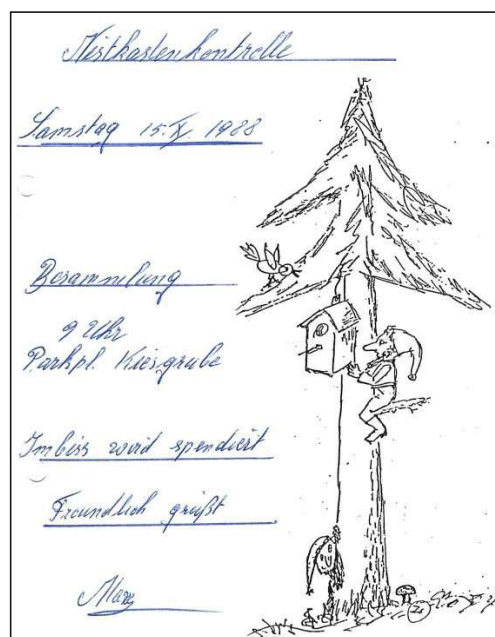 Nistkastenkontrolle
Samstag 15.X. 1988
Besammlung
9 Uhr
Parkpl. Kiesgrube
Imbiss wird spendiert
Freundlich grüßt